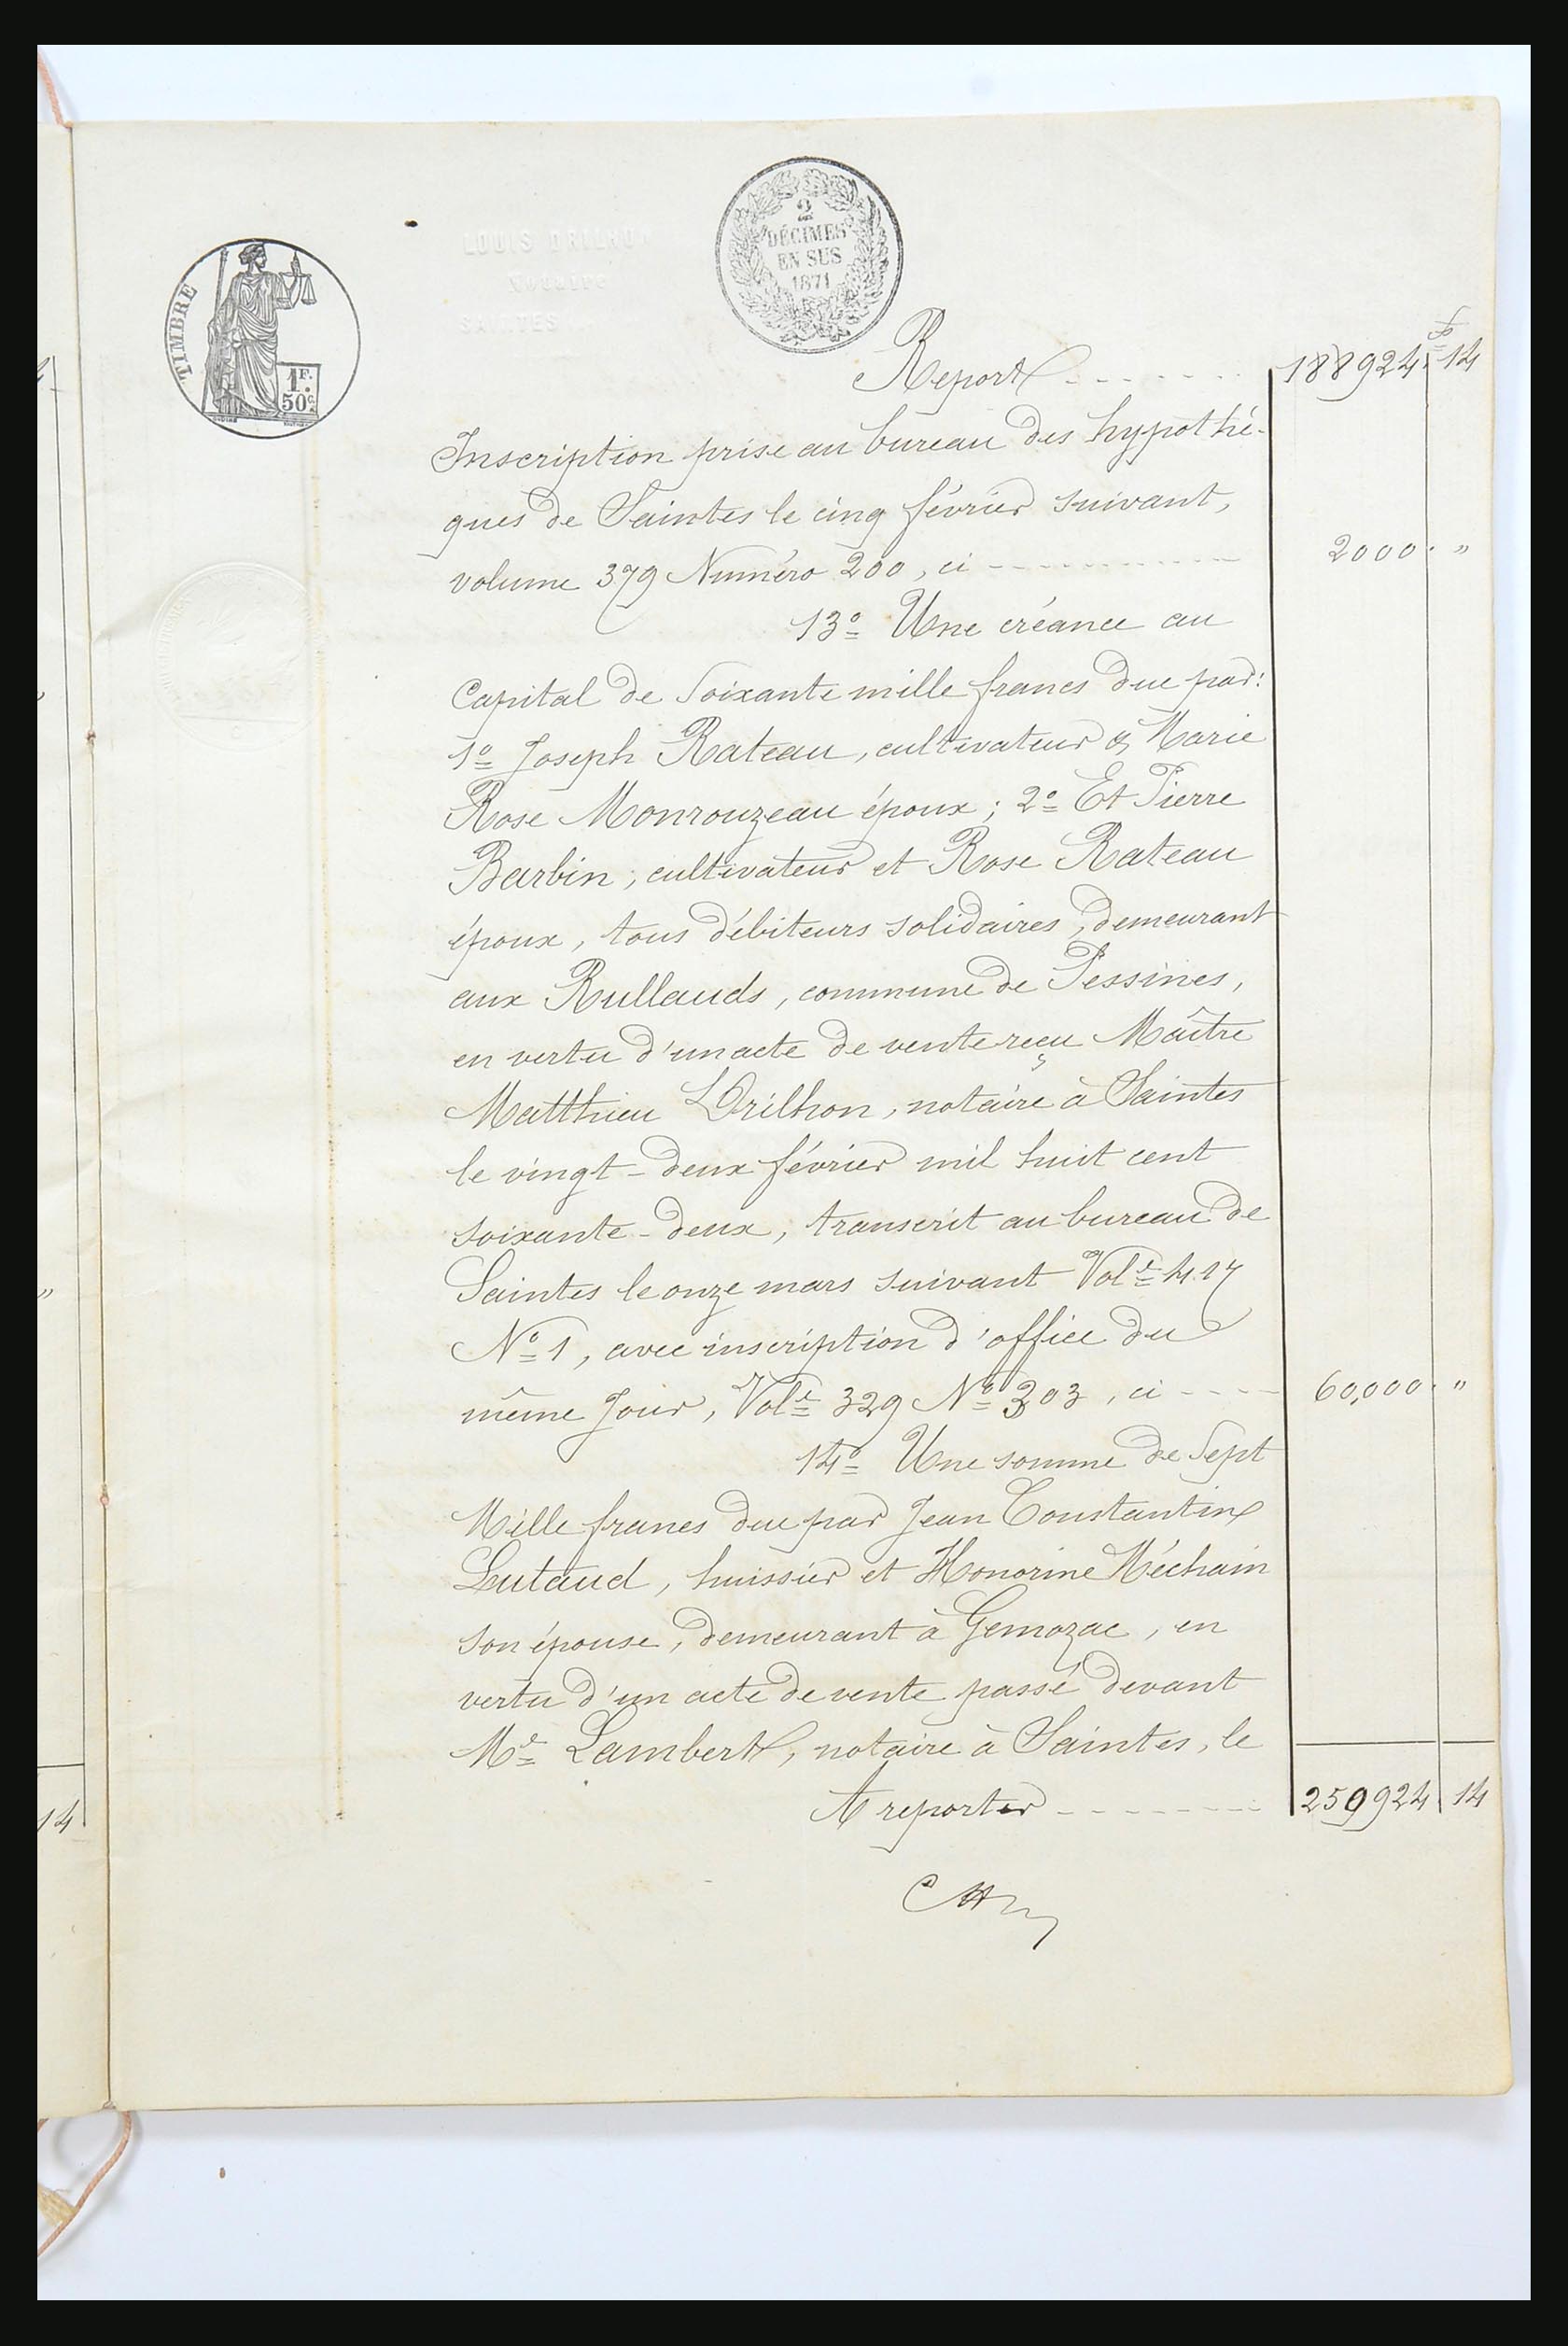 TIMBRE
1F.
50c.
LOUIS DRILHON
NOTAIRE
SAINTES
2
DÉCIMES
EN SUS
1871
Report 188924 fs 14
Inscription prise au bureau des hypothè-
ques de Saintes le cinq février suivant,
volume 379 Numéro 200, ci 2000 "
13º Une créance au
Capital de Soixante mille francs due par:
1º Joseph Rateau, cultivateur & Marie
Rose Monrouzeau époux; 2º Et Pierre
Barbin, cultivateur et Rose Rateau
époux, tous débiteurs solidaires, demeurant
aux Rullauds, commune de Pessines,
en vertu d'un acte de vente reçu Maître
Matthieu Drilhon, notaire à Saintes
le vingt-deux février mil huit cent
soixante-deux, transcrit au bureau de
Saintes le onze mars suivant Vole 417
Nº 1, avec inscription d'office du
même Jour, Vole 329 Nº 303, ci 60,000 "
14º Une somme de Sept
Mille francs due par Jean Constantin
Lutaud, huissier et Honorine Méchain
son épouse, demeurant à Gemozac, en
vertu d'un acte de vente passé devant
Me Lambert, notaire à Saintes, le
A reporter 250924 14
"
14